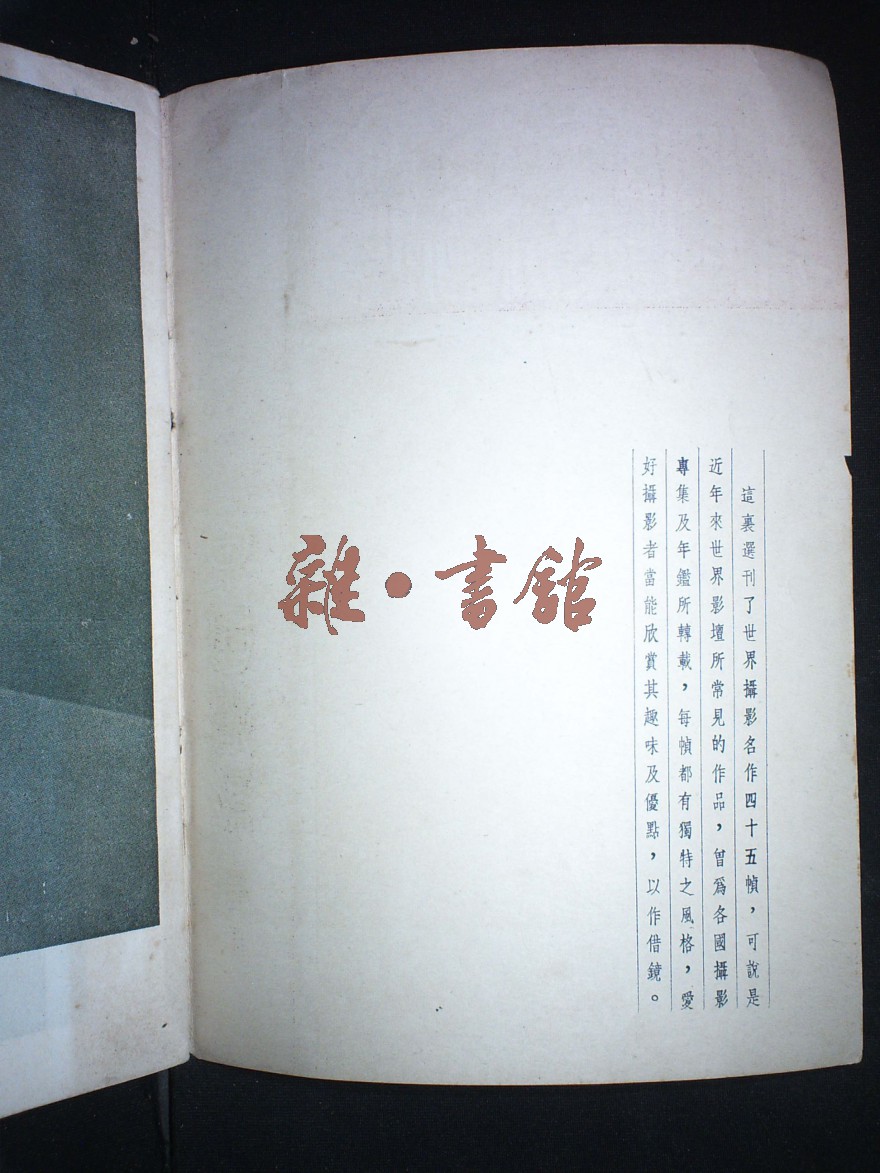 這裏選刊了世界攝影名作四十五幀，可說是
近年來世界影壇所常見的作品，曾爲各國攝影
專集及年鑑所轉載，每幀都有獨特之風格，愛
好攝影者當能欣賞其趣味及優點，以作借鏡。
雜·書館